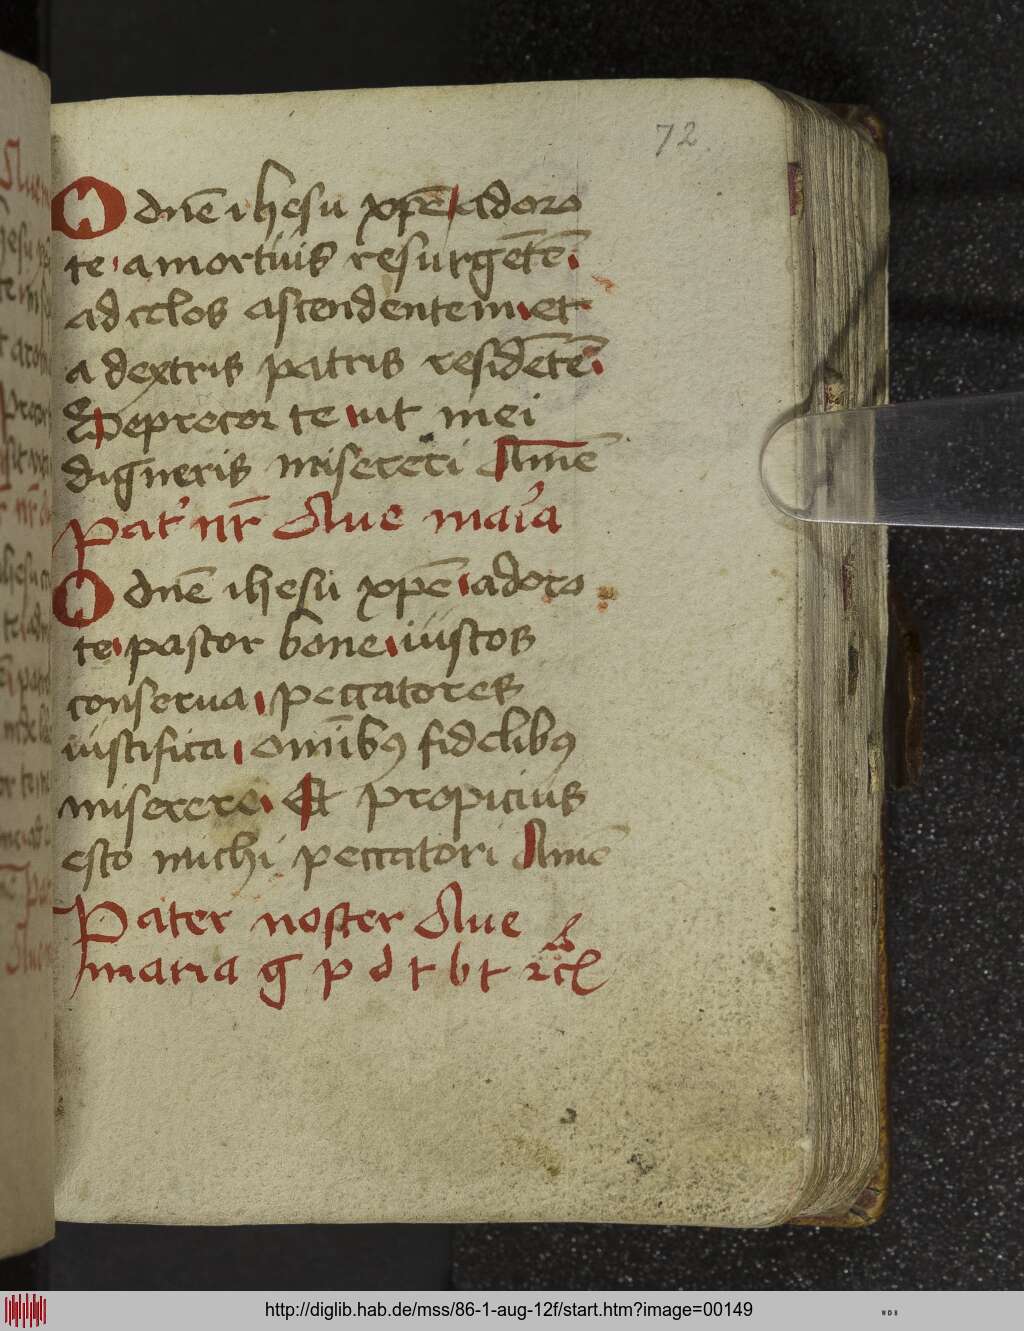 72.
O dnē ihesu xpē adoro
te a mortuis resurgētē
ad celos ascendentem et
a dextris patris residētē
Deprecor te ut mei
digneris misereri Amē
Pat' nr̄ Aue maīa
O dnē ihesu xpē adoro
te pastor bone iustos
conserua peccatores
iustifica omībꝯ fidelibꝯ
miserere Et propicius
esto michi peccatori Amē
Pater noster Aue
maria g p d t b t
http://diglib.hab.de/mss/86-1-aug-12f/start.htm?image=00149
WDB